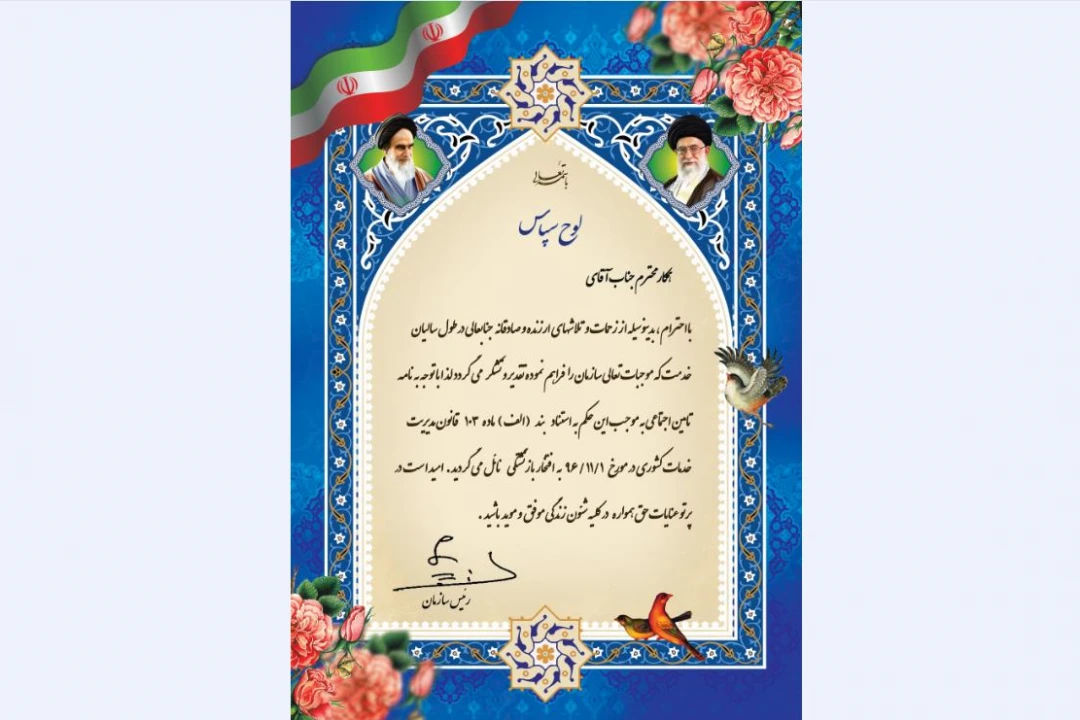 باسمه تعالی
لوح سپاس
همکار محترم جناب آقای
با احترام ، بدینوسیله از زحمات و تلاشهای ارزنده و صادقانه جنابعالی در طول سالیان
خدمت که موجبات تعالی سازمان را فراهم نموده تقدیر و تشکر می گردد لذا با توجه به نامه
تامین اجتماعی به موجب این حکم به استناد بند (الف) ماده ۱۰۳ قانون مدیریت
خدمات کشوری در مورخ ۹۶/۱۱/۱ به افتخار بازنشستگی نائل می گردید. امید است در
پرتو عنایات حق همواره در کلیه شئون زندگی موفق و موید باشید .
رئیس سازمان